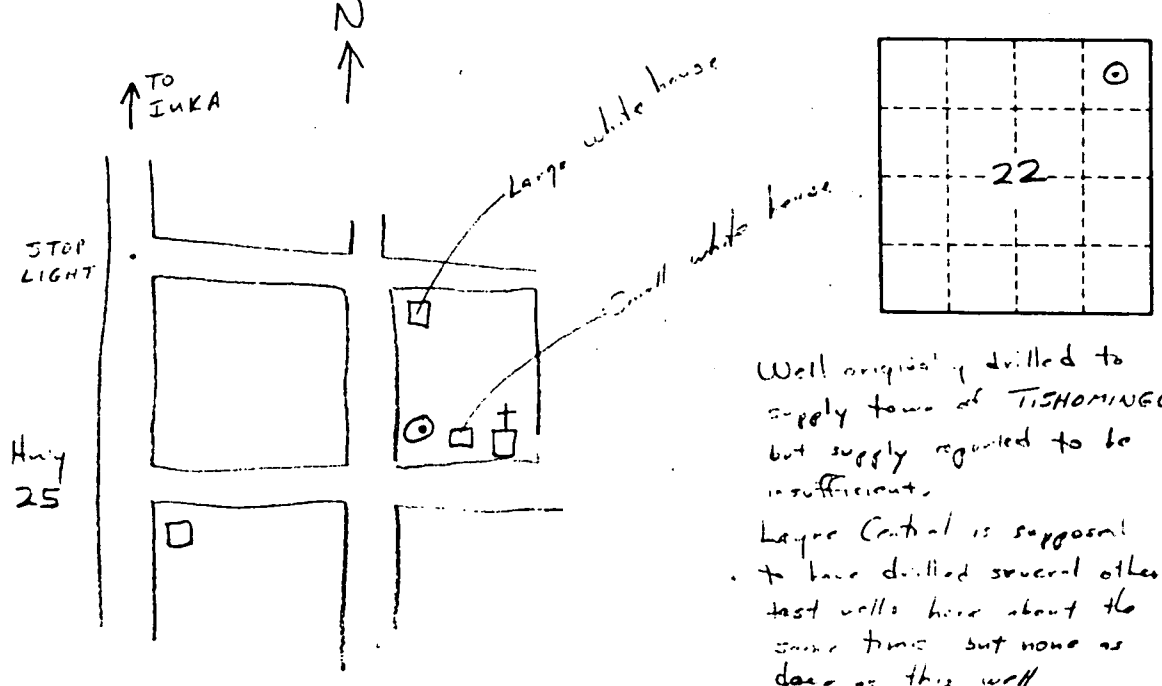 N
TO
IUKA
Large white house
STOP
LIGHT
Small white house
22
Hwy
25
Well originally drilled to
supply town of TISHOMINGO
but supply reported to be
insufficient.
Layne Central is supposed
to have drilled several other
test wells here about the
same time but none as
deep as this well